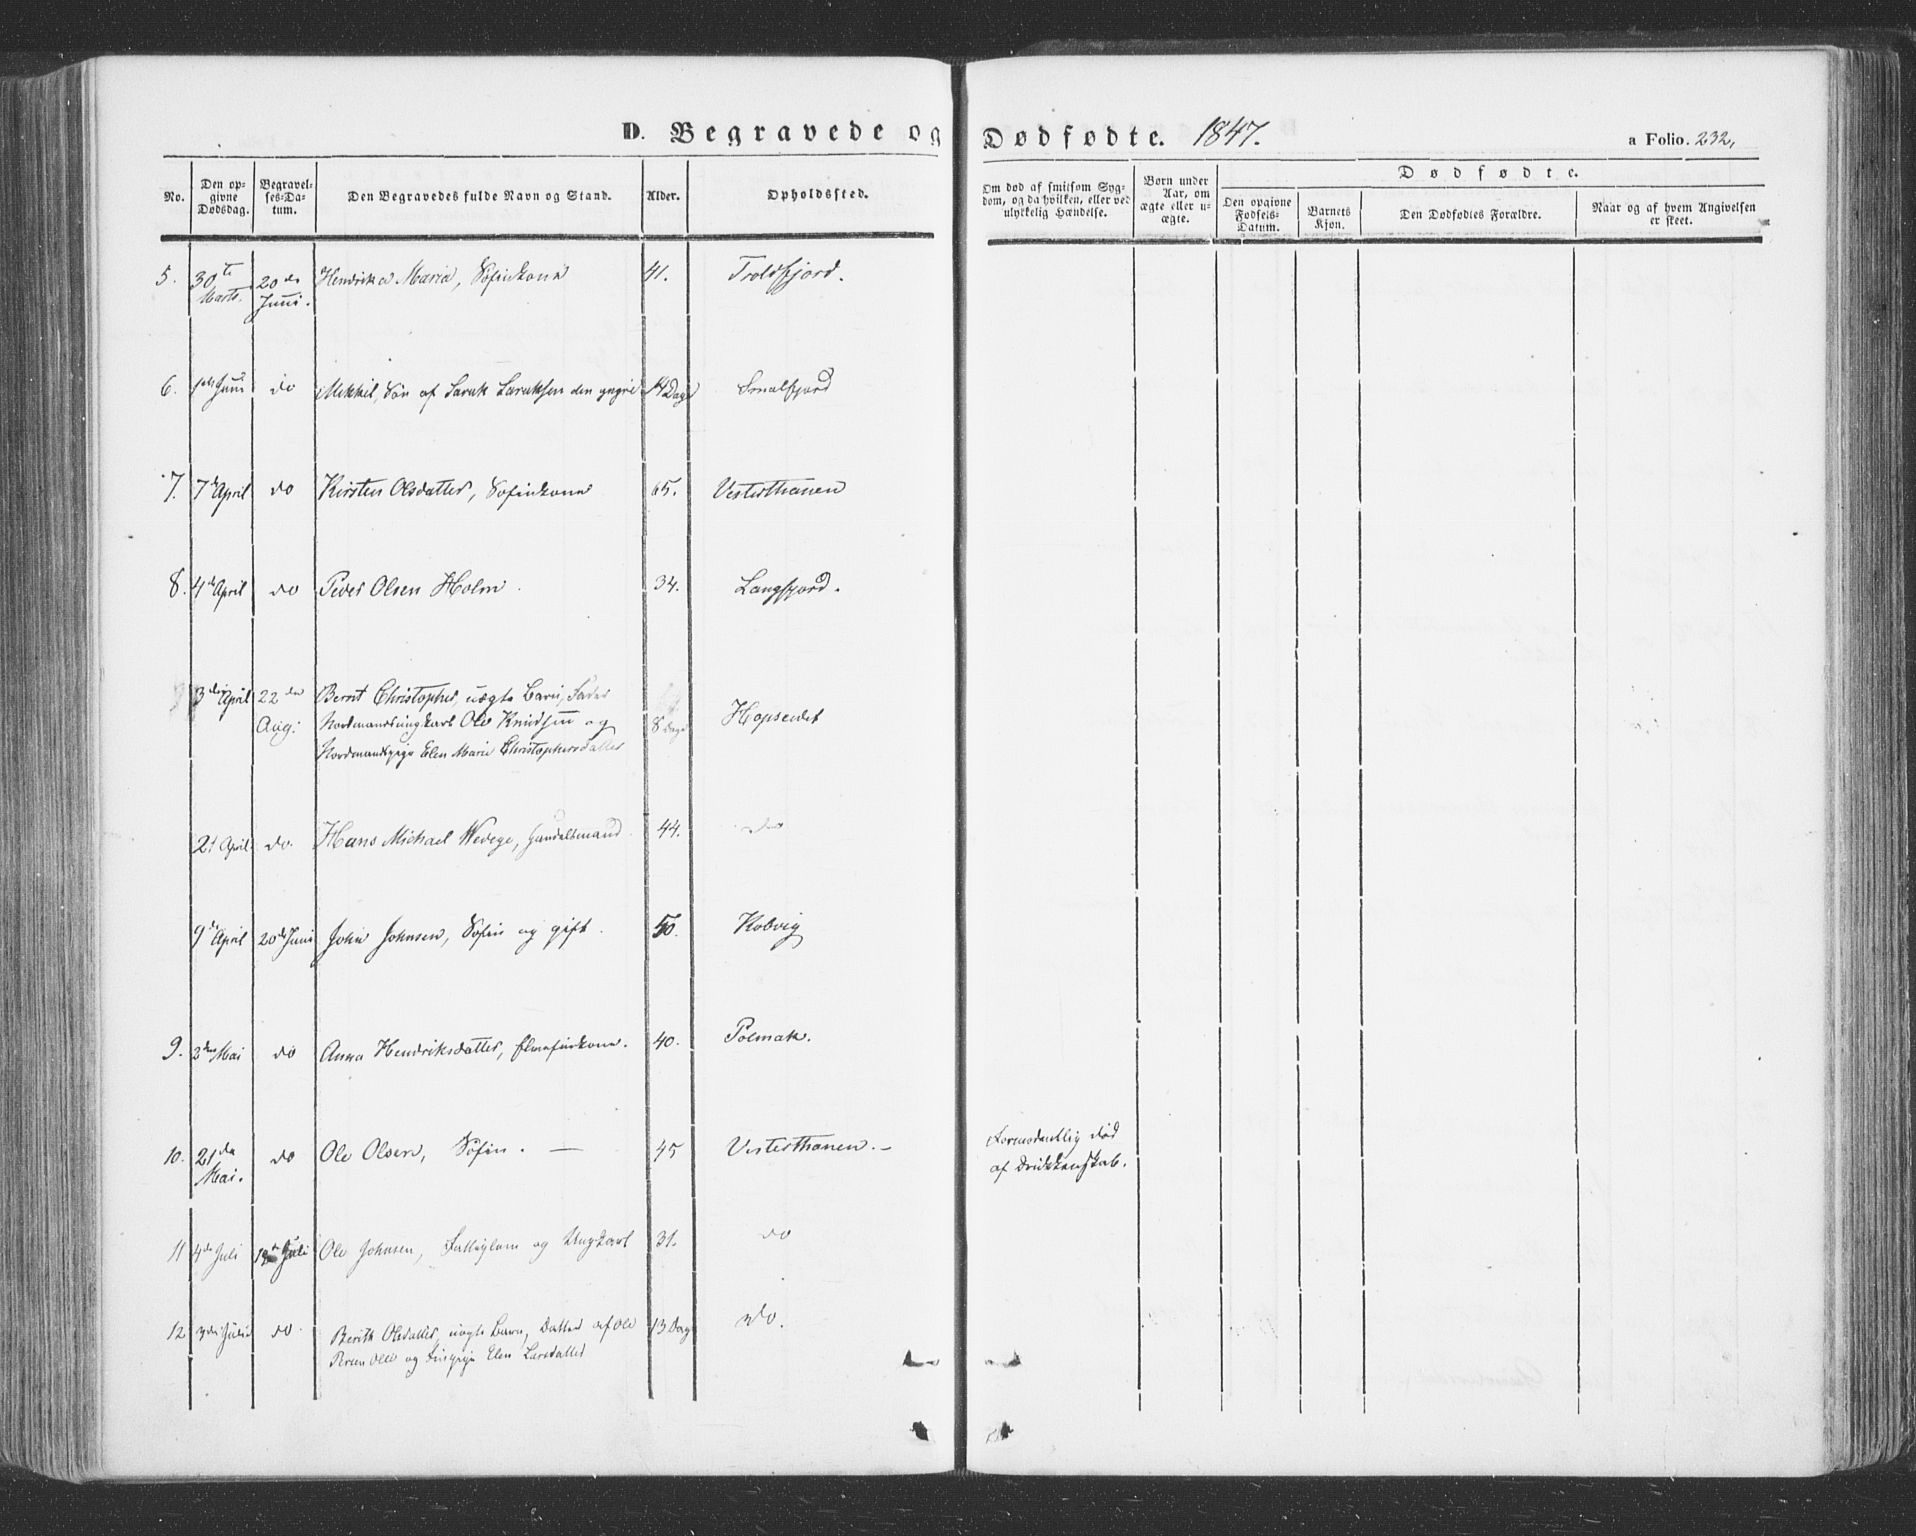 D. Begravede og Dødfødte. 1847. a Folio. 232,
No. Den opgivne Dødsdag. Begravelses-Datum. Den Begravedes fulde Navn og Stand. Alder. Opholdssted. Om død af smitsom Sygdom, og da hvilken, eller ved ulykkelig Hændelse. Børn under Aar, om ægte eller uægte. Dødfødte. Den opgivne Fødsels-Datum. Barnets Kjøn. Den Dødfødtes Forældre. Naar og af hvem Angivelsen er skeet.
5. 30te Marts. 20de Juni. Hendrika Maria, Søfinkone 41. Troldfjord.
6. Juni do Mikkel, Søn af Sarak Saraksen den yngre 14 Dage Smalfjord
7. 7de April do Kirsten Olsdatter, Søfinkone 65. Vesterthanen
8. 4de April do Peder Olsen Holm. 34. Langfjord.
3die April 22de Aug: Bernt Christopher, uægte Barn, Fader
Nordmandsungkarl Ole Knudsen og 8 Dage Hopseidet
Nordmandspige Elen Marie Christophersdatter
21 April do. Hans Michael Wedege, Handelsmand. 44. do
9de April 20de Juni John Johnsen, Søfin og gift. 50. Kobvig
9. 2den Mai do Anna Hendriksdatter, Elvefinkone. 40. Polmak.
10. 21de Mai. do Ole Olsen, Søfin. — 45 Vesterthanen. – Formodentlig død
af Drukkenskab.
11 4de Juli Juli Ole Johnsen, Fattiglem og Ungkarl 31. do
12 Juli do Berith Olsdatter, uægte Barn, Datter af Ole 13 Dage do.
og Finpige Elen Larsdatter